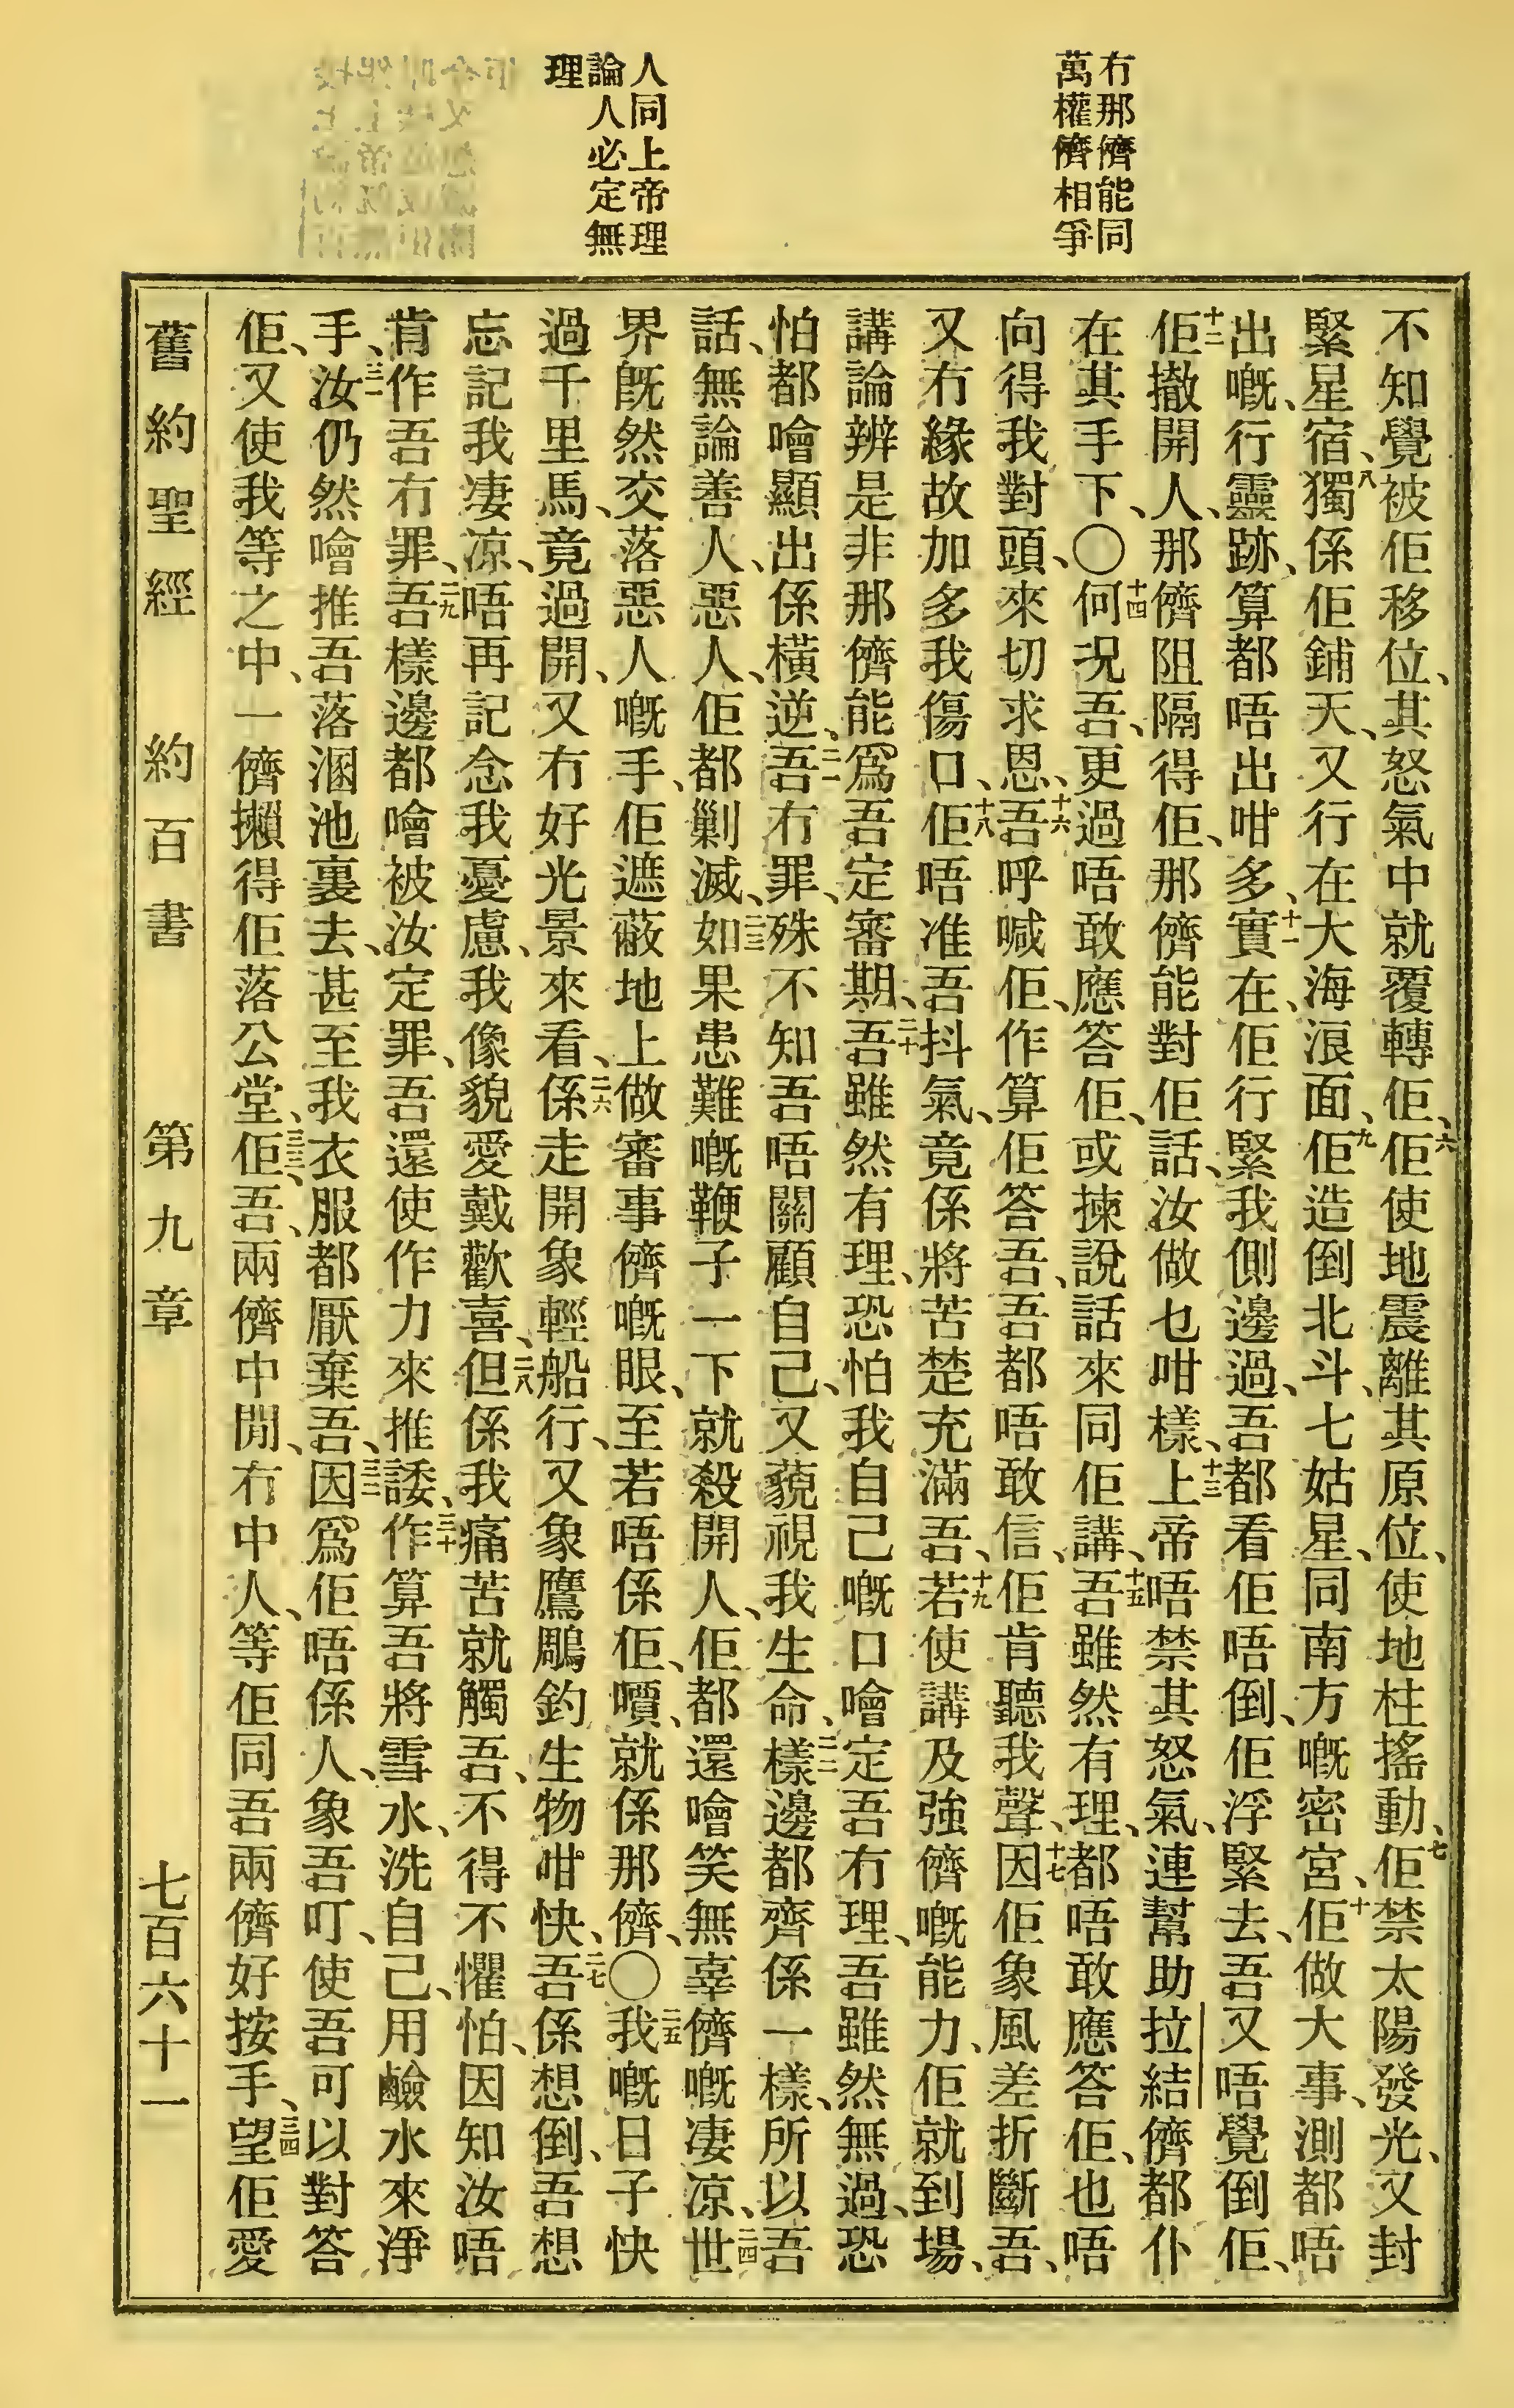 冇那儕能同
萬權儕相爭
人同上帝理
論人必定無
理
不知覺被佢移位、其怒氣中就覆轉佢、六佢使地震離其原位、使地柱搖動、七佢禁太陽發光、又封
緊星宿、八獨係佢鋪天、又行在大海浪面、九佢造倒北斗、七姑星、同南方嘅密宮、十佢做大事、測都唔
出嘅、行靈跡、算都唔出咁多、十一實在、佢行緊我側邊過、吾都看佢唔倒、佢浮緊去、吾又唔覺倒佢、
十二佢撤開人、那儕阻隔得佢、那儕能對佢話、汝做乜咁樣、十三上帝唔禁其怒氣、連幫助拉結儕都仆
在其手下、〇十四何況吾、更過唔敢應答佢、或揀說話來同佢講、十五吾雖然有理、都唔敢應答佢、也唔
向得我對頭、來切求恩、十六吾呼喊佢、作算佢答吾、吾都唔敢信、佢肯聽我聲、十七因佢象風差折斷吾、
又冇緣故加多我傷口、十八佢唔准吾抖氣、竟係將苦楚充滿吾、十九若使講及強儕嘅能力、佢就到場、
講論辨是非那儕能爲吾定審期、二十吾雖然有理、恐怕我自己嘅口噲定吾冇理、吾雖然無過、恐
怕都噲顯出係橫逆、二一吾冇罪、殊不知吾唔關顧自己、又藐視我生命、二二樣邊都齊係一樣、所以吾
話、無論善人、惡人、佢都剿滅、二三如果患難嘅鞭子一下就殺開人、佢都還噲笑無辜儕嘅凄凉、二四世
界旣然交落惡人嘅手、佢遮蔽地上做審事儕嘅眼、至若唔係佢、嘪、就係那儕、〇二五我嘅日子快
過千里馬、竟過開、又冇好光景來看、二六係走開象輕船行、又象鷹鵰釣生物咁快、二七吾係想倒、吾想
忘記我凄凉、唔再記念我憂慮、我像貌愛戴歡喜、二八但係我痛苦就觸吾、不得不懼怕、因知汝唔
肯作吾冇罪、二九吾樣邊都噲被汝定罪、吾還使作力來推諉、三十作算吾將雪水、洗自己、用鹼水來淨
手、三一汝仍然噲推吾落溷池裏去、甚至我衣服都厭棄吾、三二因爲佢唔係人、象吾叮、使吾可以對答
佢、又使我等之中、一儕攋得佢落公堂、三三佢、吾、兩儕中間、冇中人、等佢同吾兩儕好按手、三四望佢愛
舊約聖經　約百書　第九章　七百六十一